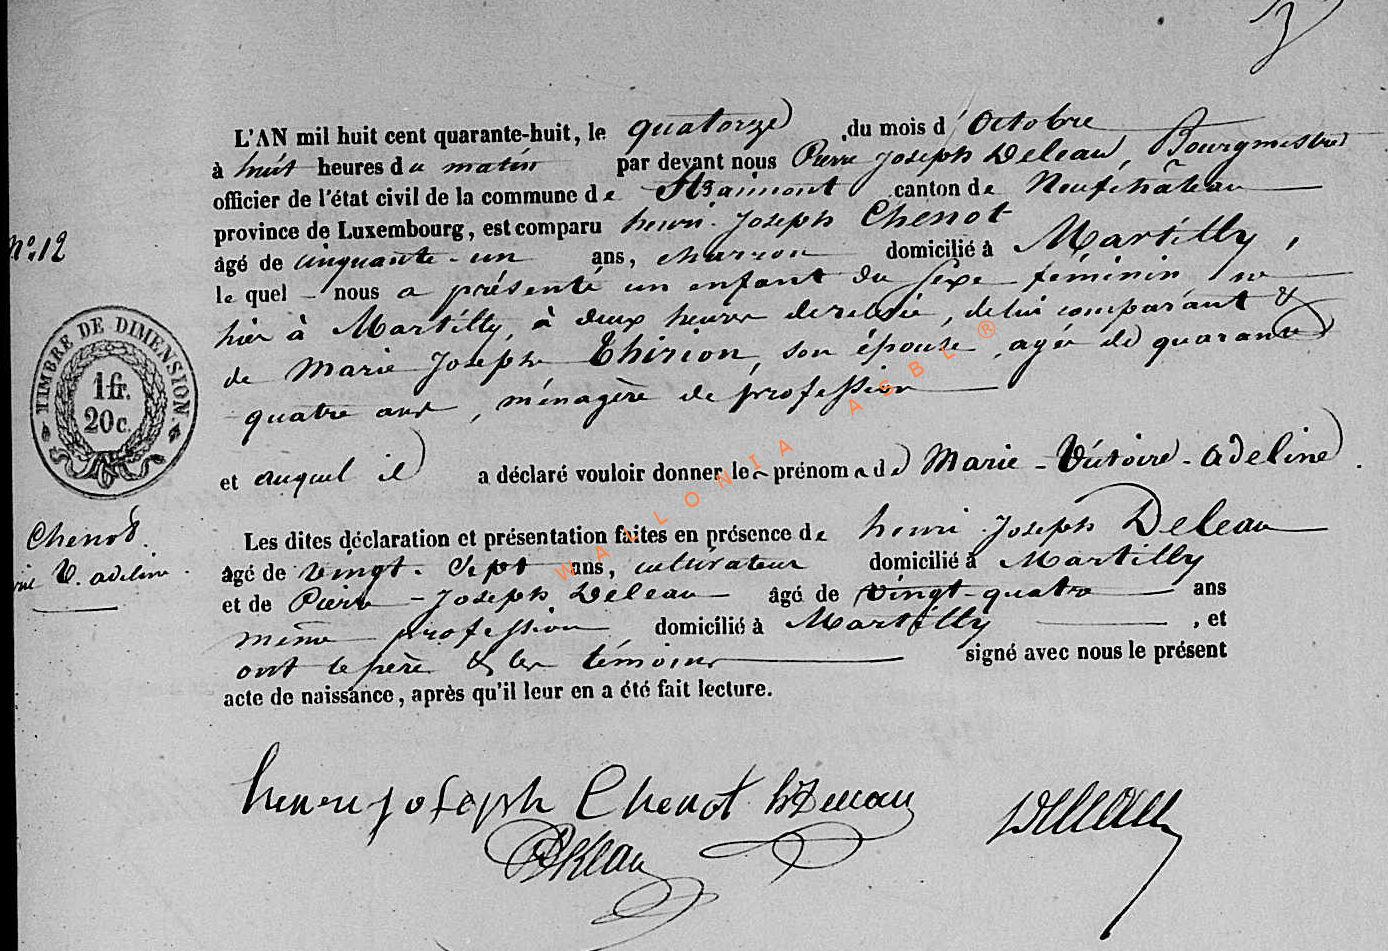 L'AN mil huit cent quarante-huit, le quatorze du mois d'Octobre
à huit heures du matin par devant nous Pierre Joseph Deleau, Bourgmestre
officier de l'état civil de la commune de Straimont canton de Neufchâteau
province de Luxembourg, est comparu henri Joseph Chenot
No. 12
âgé de cinquante-un ans, charron domicilié à Martilly,
le quel nous a présenté un enfant du sexe féminin né
hier à Martilly, à deux heures de relevée, de lui comparant &
de Marie Joseph Thirion, son épouse, agée de quarante
quatre ans, ménagère de profession
TIMBRE DE DIMENSION.
1 fr.
20 c.
et auquel il a déclaré vouloir donner les prénoms de Marie-Victoire-adeline.
Chenot.
V. adeline.
Les dites déclaration et présentation faites en présence de henri Joseph Deleau
âgé de vingt-sept ans, cultivateur domicilié à Martilly
et de Pierre-Joseph Deleau âgé de vingt-quatre ans
même profession domicilié à Martilly, et
ont le père & les témoins signé avec nous le présent
acte de naissance, après qu'il leur en a été fait lecture.
henri joseph Chenot hDeleau
Deleau
Deleau
WALLONIA ASBL ®